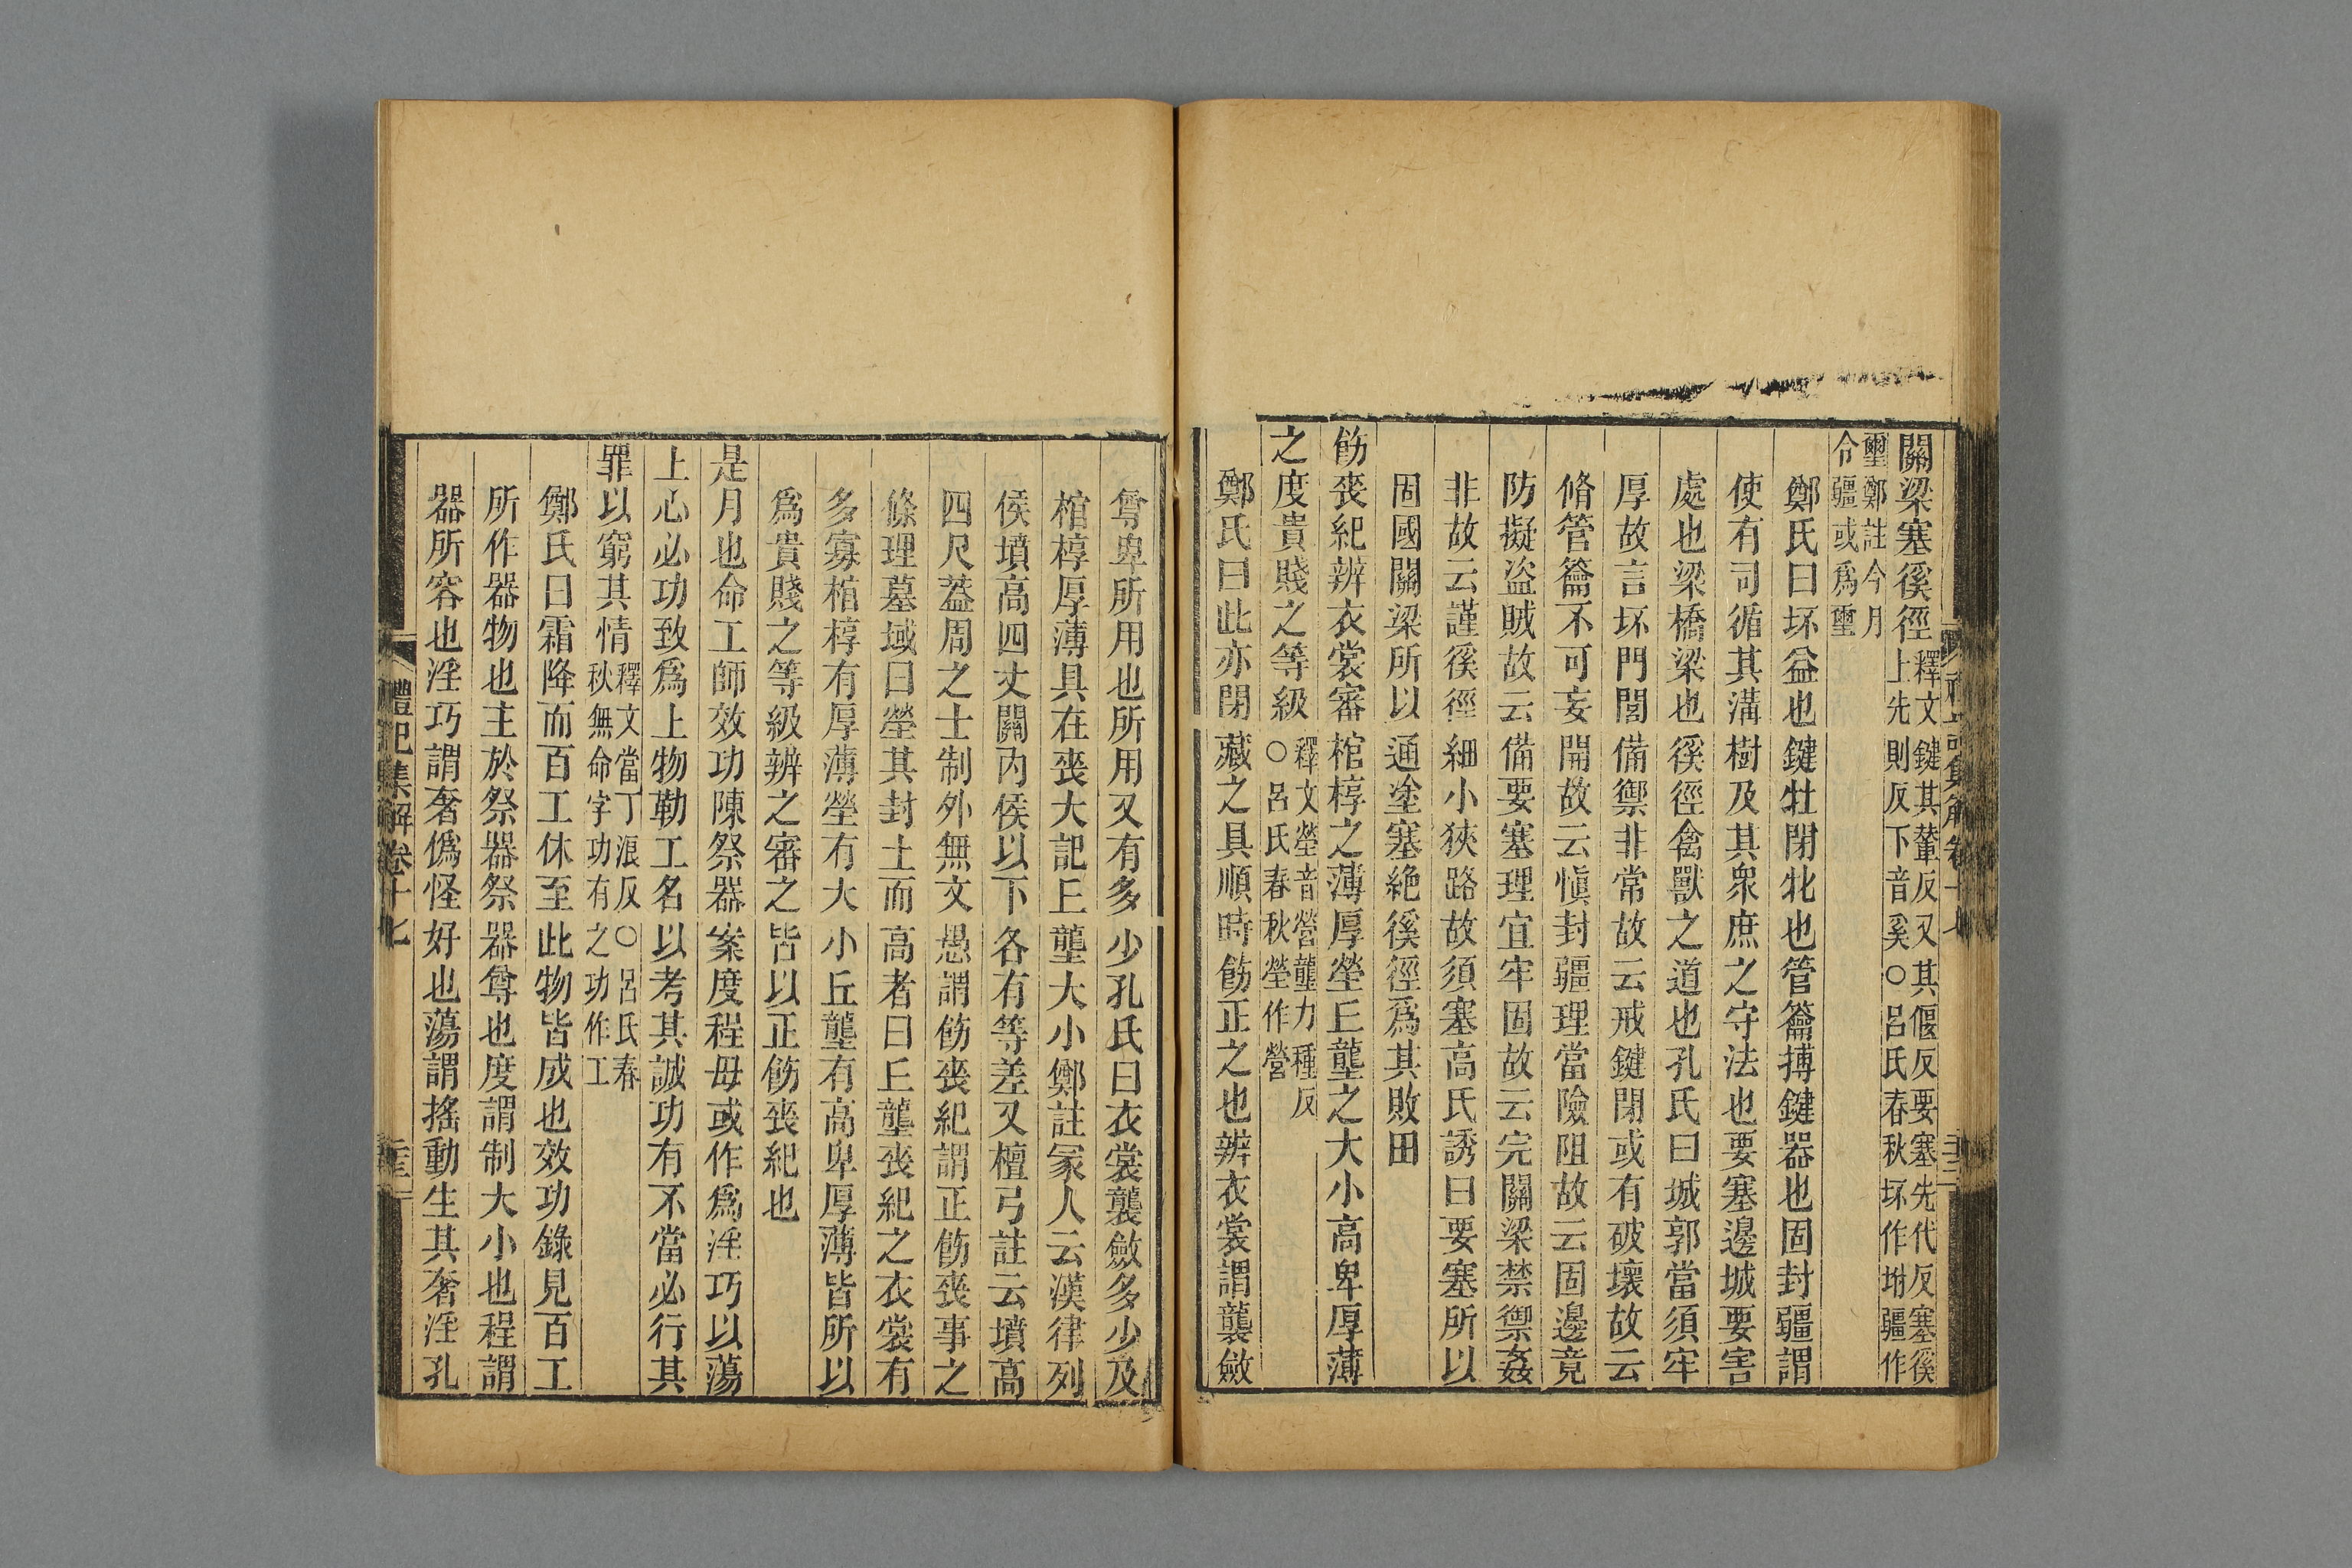 關梁塞徯徑釋文鍵其輦反又其偃反要塞先代反塞徯
上先則反下音奚○呂氏春秋坏作坿疆作
璽鄭註今月
令疆或爲璽
鄭氏曰坏益也鍵牡閉牝也管籥搏鍵器也固封疆謂
使有司循其溝樹及其衆庶之守法也要塞邊城要害
處也梁橋梁也徯徑禽獸之道也孔氏曰城郭當須牢
厚故言坏門閭備禦非常故云戒鍵閉或有破壞故云
脩管籥不可妄開故云愼封疆理當險阻故云固邊竟
防擬盜賊故云備要塞理宜牢固故云完關梁禁禦姦
非故云謹徯徑細小狹路故須塞高氏誘曰要塞所以
固國關梁所以通塗塞絶徯徑爲其敗田
飭喪紀辨衣裳審棺椁之薄厚塋丘壟之大小高卑厚薄
之度貴賤之等級釋文塋音營壟力種反
○呂氏春秋塋作營
鄭氏曰此亦閉藏之具順時飭正之也辨衣裳謂襲斂
尊卑所用也所用又有多少孔氏曰衣裳襲斂多少及
棺椁厚薄具在喪大記上壟大小鄭註冢人云漢律列
侯墳高四丈關內侯以下各有等差又檀弓註云墳高
四尺蓋周之士制外無文愚謂飭喪紀謂正飭喪事之
條理墓域曰塋其封土而高者曰丘壟喪紀之衣裳有
多寡棺椁有厚薄塋有大小丘壟有高卑厚薄皆所以
爲貴賤之等級辨之審之皆以正飭喪紀也
是月也命工師效功陳祭器案度程毋或作爲淫巧以蕩
上心必功致爲上物勒工名以考其誠功有不當必行其
罪以窮其情釋文當丁浪反○呂氏春
秋無命字功有之功作工
鄭氏曰霜降而百工休至此物皆成也效功錄見百工
所作器物也主於祭器祭器尊也度謂制大小也程謂
器所容也淫巧謂奢僞怪好也蕩謂搖動生其奢淫孔
禮記集解卷十七